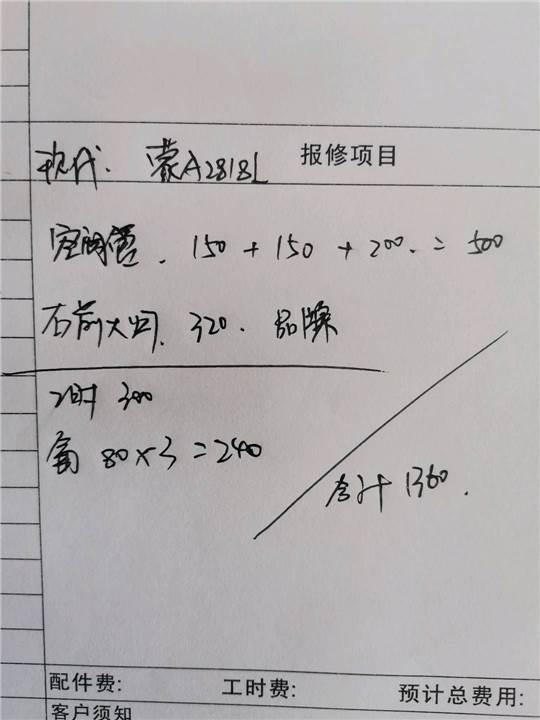 现代. 蒙A2818L 报修项目
150 + 150 + 200. = 500
右前大灯, 320. 品牌
工时 300
80×3=240
合计 1360.
配件费: 工时费: 预计总费用:
客户须知